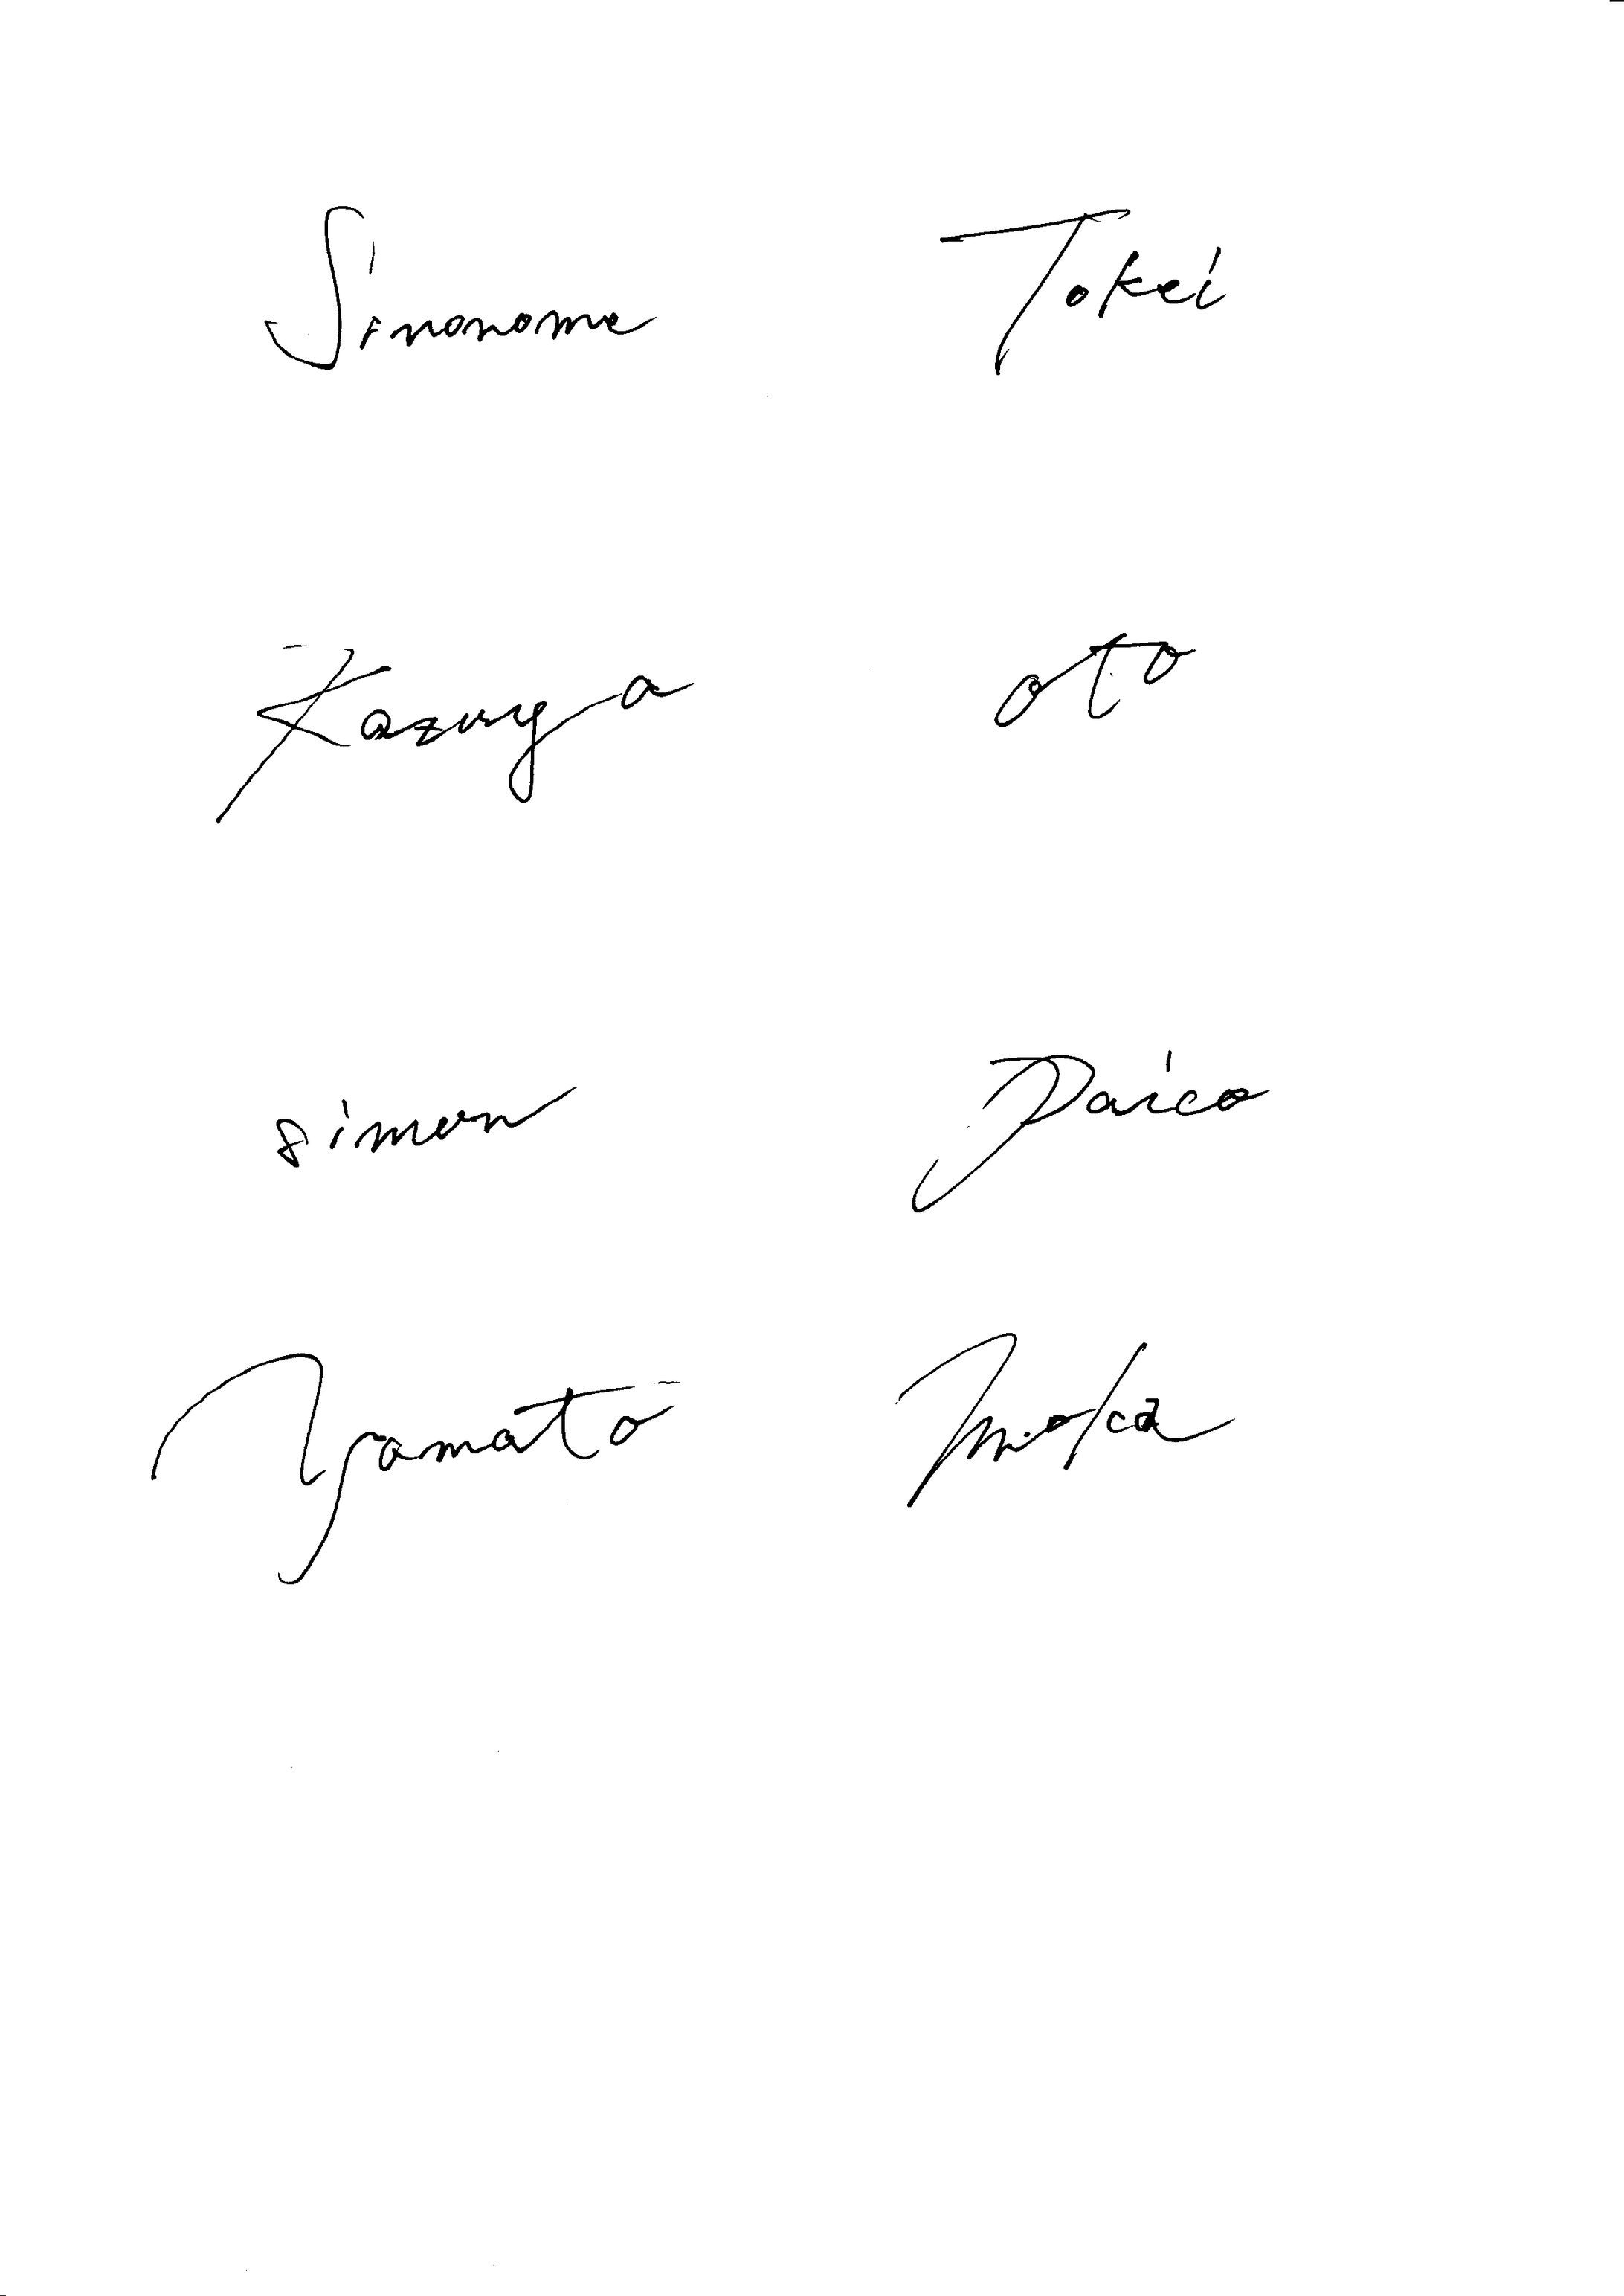 Sinonome Tokei
Kazuya oto
simon Daico
Yamato Moka